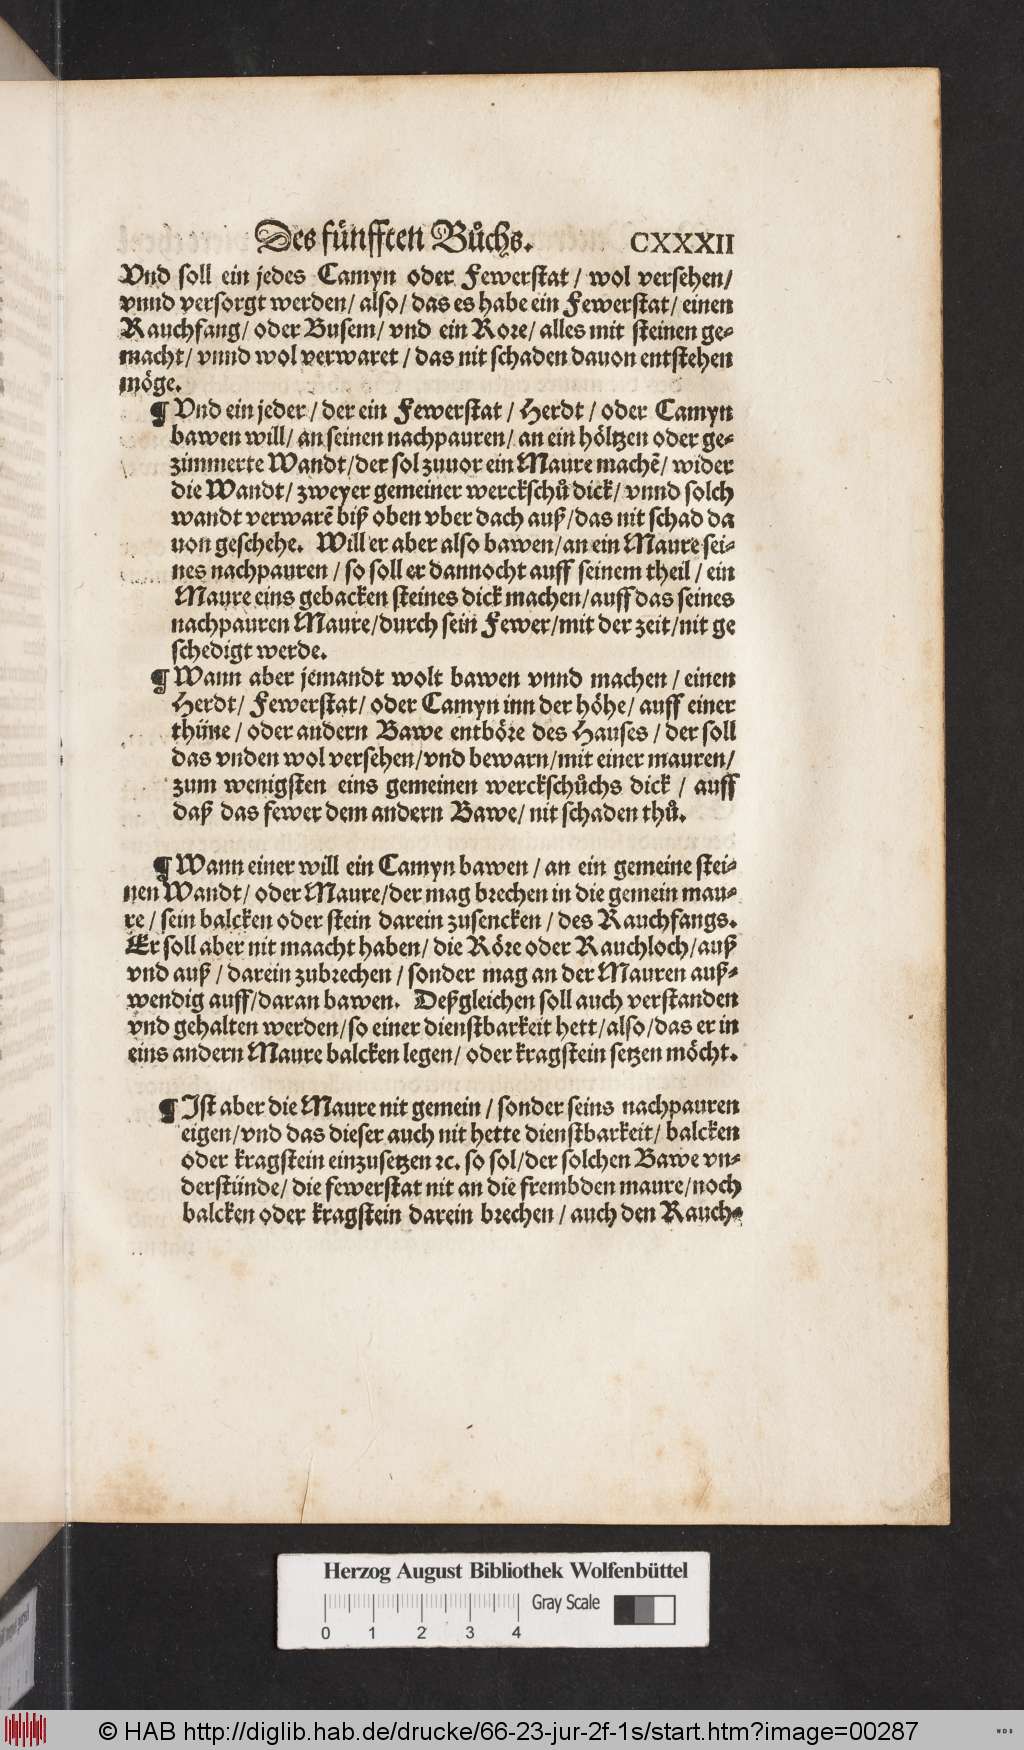 Des fünfften Bůchs. CXXXII
Vnd soll ein jedes Camyn oder Fewerstat / wol versehen/
vnnd versorgt werden/ also/ das es habe ein Fewerstat/ einen
Rauchfang/ oder Busem/ vnd ein Rore/ alles mit steinen ge-
macht/ vnnd wol verwaret / das nit schaden dauon entstehen
möge.
¶ Vnd ein jeder / der ein Fewerstat / Herdt / oder Camyn
bawen will/ an seinen nachpauren/ an ein höltzen oder ge-
zimmerte Wandt/ der sol zuuor ein Maure machẽ/ wider
die Wandt/ zweyer gemeiner werckschů dick/ vnnd solch
wandt verwarẽ biß oben vber dach auß/ das nit schad da
uon geschehe. Will er aber also bawen/ an ein Maure sei-
nes nachpauren / so soll er dannocht auff seinem theil / ein
Maure eins gebacken steines dick machen/ auff das seines
nachpauren Maure/ durch sein Fewer/ mit der zeit/ nit ge
schedigt werde.
¶ Wann aber jemandt wolt bawen vnnd machen / einen
Herdt/ Fewerstat/ oder Camyn inn der höhe/ auff einer
thüne/ oder andern Bawe entböre des Hauses / der soll
das vnden wol versehen/ vnd bewarn/ mit einer mauren/
zum wenigsten eins gemeinen werckschůchs dick / auff
daß das fewer dem andern Bawe/ nit schaden thů.
¶ Wann einer will ein Camyn bawen / an ein gemeine stei-
nen Wandt/ oder Maure/ der mag brechen in die gemein mau-
re / sein balcken oder stein darein zusencken / des Rauchfangs.
Er soll aber nit maacht haben/ die Röre oder Rauchloch/ auß
vnd auß / darein zubrechen / sonder mag an der Mauren auß-
wendig auff/ daran bawen. Deßgleichen soll auch verstanden
vnd gehalten werden/ so einer dienstbarkeit hett/ also/ das er in
eins andern Maure balcken legen/ oder kragstein setzen möcht.
¶ Ist aber die Maure nit gemein / sonder seins nachpauren
eigen/ vnd das dieser auch nit hette dienstbarkeit/ balcken
oder kragstein einzusetzen ꝛc. so sol/ der solchen Bawe vn-
derstünde/ die fewerstat nit an die frembden maure/ noch
balcken oder kragstein darein brechen / auch den Rauch-
Herzog August Bibliothek Wolfenbüttel
Gray Scale
0 1 2 3 4
© HAB http://diglib.hab.de/drucke/66-23-jur-2f-1s/start.htm?image=00287